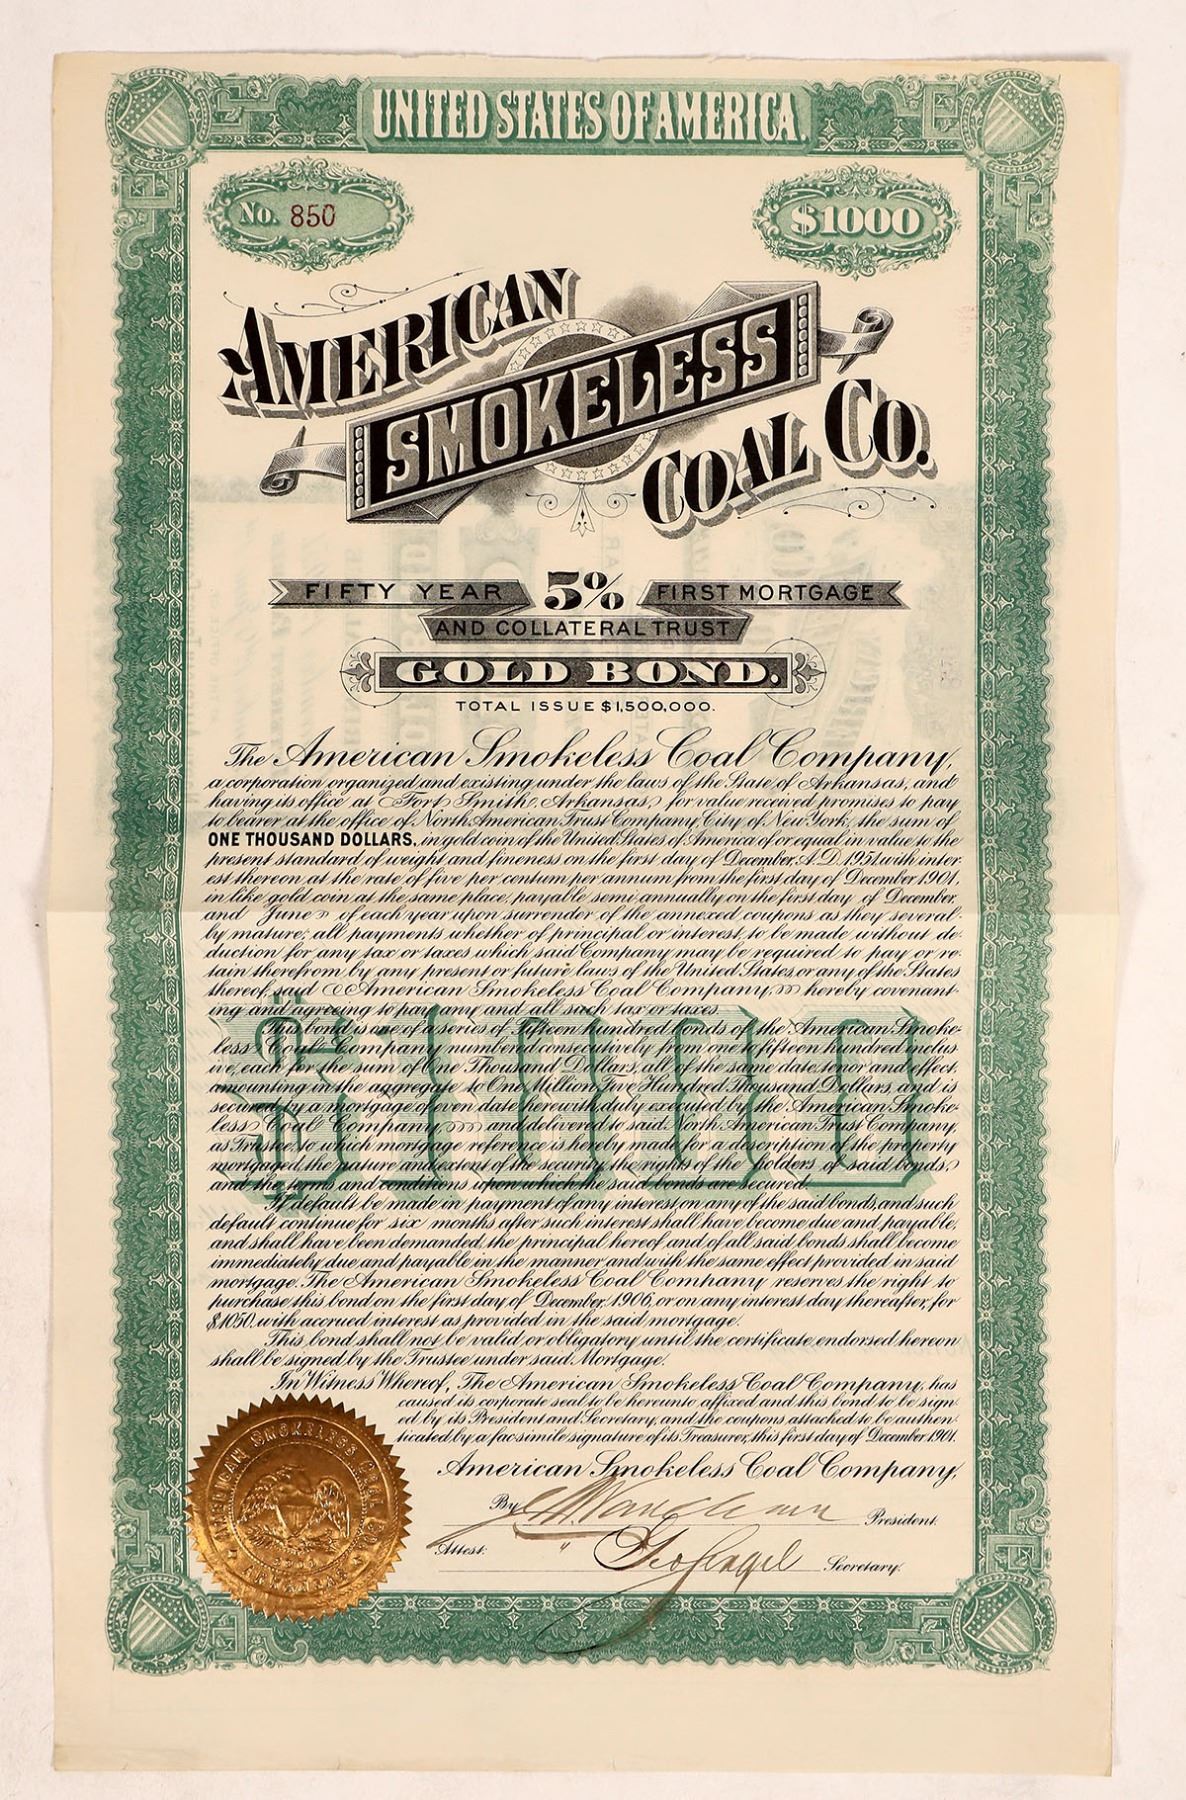 UNITED STATES OF AMERICA.
No. 850
$1000
AMERICAN
SMOKELESS
COAL CO.
FIFTY YEAR 5% FIRST MORTGAGE
AND COLLATERAL TRUST
GOLD BOND.
TOTAL ISSUE $1,500,000.
The American Smokeless Coal Company,
a corporation organized and existing under the laws of the State of Arkansas, and
having its office at Fort Smith, Arkansas, for value received promises to pay
to bearer at the office of North American Trust Company, City of New York, the sum of
ONE THOUSAND DOLLARS, in gold coin of the United States of America of or equal in value to the
present standard of weight and fineness on the first day of December, A.D. 1951 with inter-
est thereon at the rate of five per centum per annum from the first day of December 1901,
in like gold coin at the same place, payable semi annually on the first day of December
and June of each year upon surrender of the annexed coupons as they several-
ly mature; all payments whether of principal or interest, to be made without de-
duction for any tax or taxes which said Company may be required to pay or re-
tain therefrom by any present or future laws of the United States, or any of the States
thereof, said American Smokeless Coal Company, hereby covenant-
ing and agreeing to pay any and all such tax or taxes.
$1000
This bond is one of a series of Fifteen hundred bonds of the American Smoke-
less Coal Company numbered consecutively from one to fifteen hundred inclus-
ive, each for the sum of One Thousand Dollars, all of the same date, tenor and effect,
amounting in the aggregate to One Million, Five Hundred Thousand Dollars, and is
secured by a mortgage of even date herewith, duly executed by the American Smoke-
less Coal Company and delivered to said North American Trust Company,
as Trustee, to which mortgage reference is hereby made for a description of the property
mortgaged, the nature and extent of the security, the rights of the holders of said bonds,
and the terms and conditions upon which the said bonds are secured.
If default be made in payment of any interest on any of the said bonds, and such
default continue for six months after such interest shall have become due and payable,
and shall have been demanded, the principal hereof and of all said bonds shall become
immediately due and payable in the manner and with the same effect provided in said
mortgage. The American Smokeless Coal Company reserves the right to
purchase this bond on the first day of December, 1906, or on any interest day thereafter, for
$1050. with accrued interest as provided in the said mortgage.
This bond shall not be valid or obligatory until the certificate endorsed hereon
shall be signed by the Trustee under said Mortgage.
In Witness Whereof, The American Smokeless Coal Company, has
caused its corporate seal to be hereunto affixed and this bond to be sign-
ed by its President and Secretary, and the coupons attached to be authen-
ticated by a facsimile signature of its Treasurer, this first day of December 1901.
American Smokeless Coal Company,
By President.
Attest: Geo Sengel Secretary.
AMERICAN SMOKELESS COAL CO.
ARKANSAS